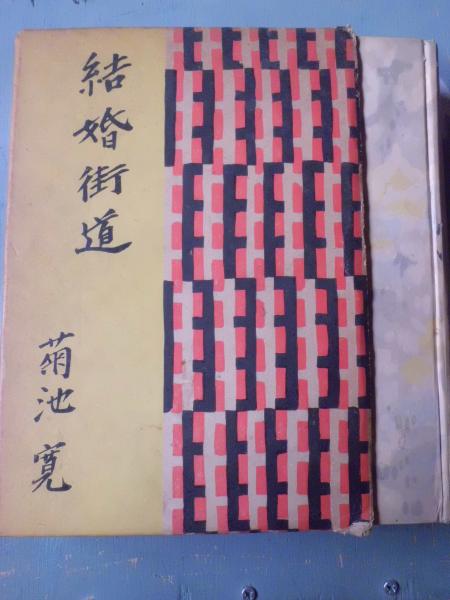 結婚街道
菊池寛